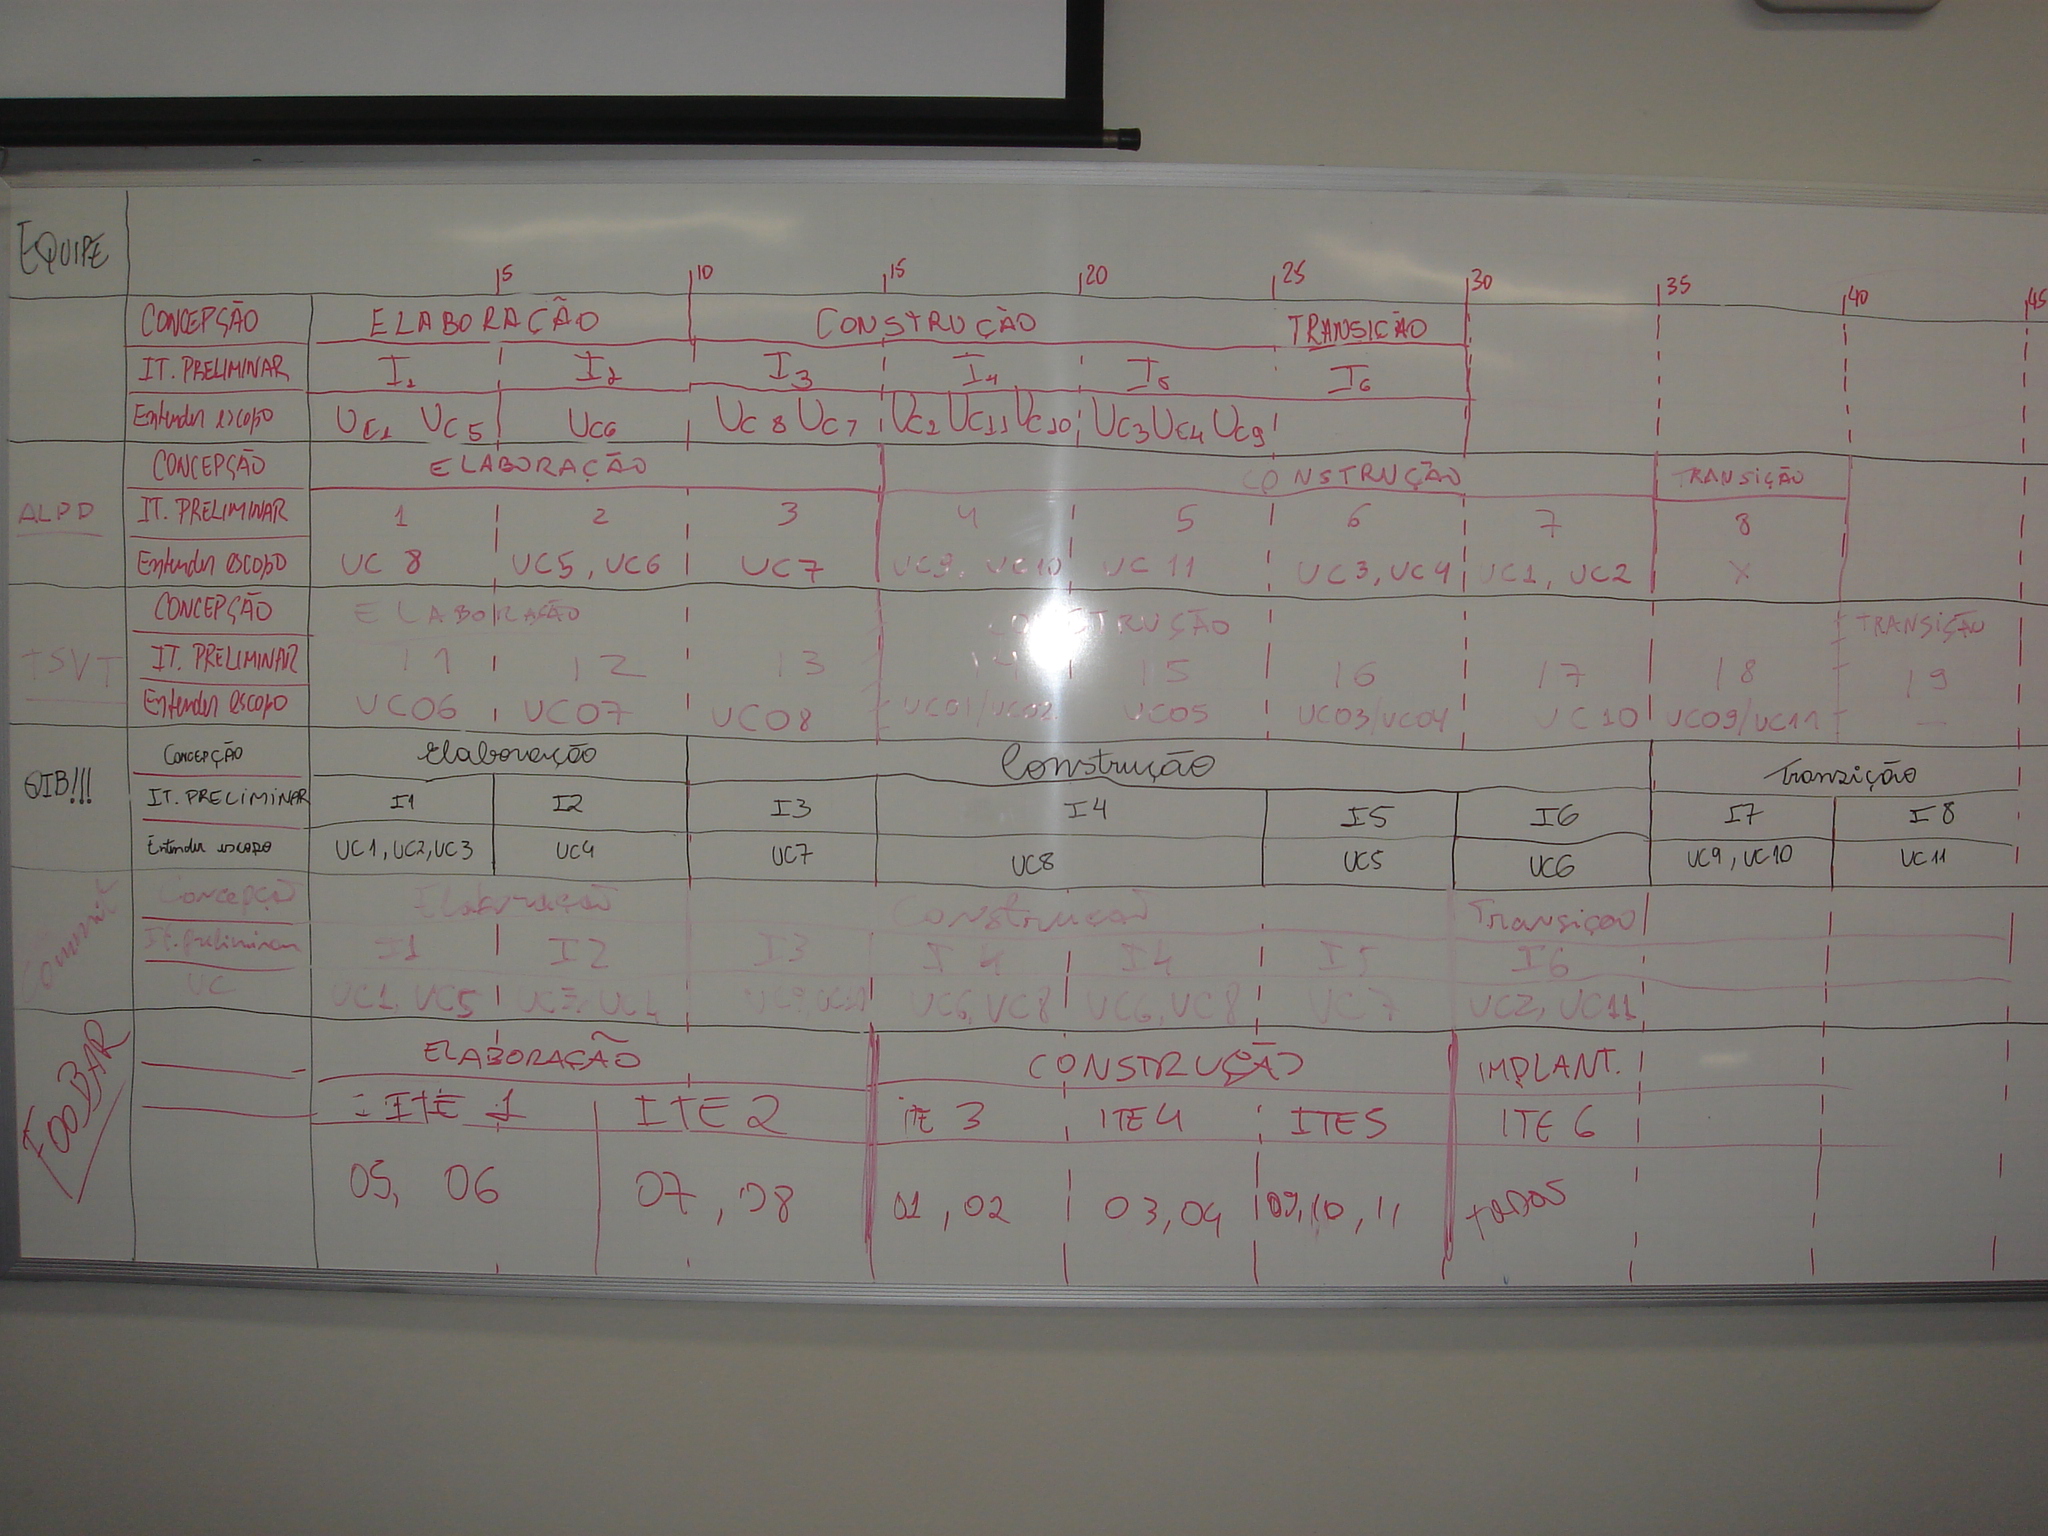 EQUIPE
5 10 15 20 25 30 35 40 45
CONCEPÇÃO ELABORAÇÃO CONSTRUÇÃO TRANSIÇÃO
IT. PRELIMINAR I1 I2 I3 I4 I5 I6
Entender escopo UC1 UC5 UC6 UC8 UC7 UC2 UC11 UC10 UC3 UC4 UC9
CONCEPÇÃO ELABORAÇÃO CONSTRUÇÃO TRANSIÇÃO
ALPD IT. PRELIMINAR 1 2 3 4 5 6 7 8
Entender escopo UC 8 UC5, UC6 UC7 UC9, UC10 UC 11 UC3, UC4 UC1, UC2 X
CONCEPÇÃO ELABORAÇÃO CONSTRUÇÃO TRANSIÇÃO
TSVT IT. PRELIMINAR I1 I2 I3 I4 I5 I6 I7 I8 I9
Entender escopo UC06 UC07 UC08 UC01/UC02 UC05 UC03/UC04 UC10 UC09/UC11 —
CONCEPÇÃO Elaboração Construção Transição
GIB!!! IT. PRELIMINAR I1 I2 I3 I4 I5 I6 I7 I8
Entender escopo UC1, UC2, UC3 UC4 UC7 UC8 UC5 UC6 UC9, UC10 UC11
Commit Concepção Elaboração Construção Transição
It. preliminar I1 I2 I3 I4 I4 I5 I6
UC UC1, UC5 UC6, UC8 UC6, UC8 UC7 UC2, UC11
FOOBAR ELABORAÇÃO CONSTRUÇÃO IMPLANT.
ITE 1 ITE 2 ITE 3 ITE 4 ITE 5 ITE 6
05, 06 07, 08 01, 02 03, 04 09, 10, 11 TODOS